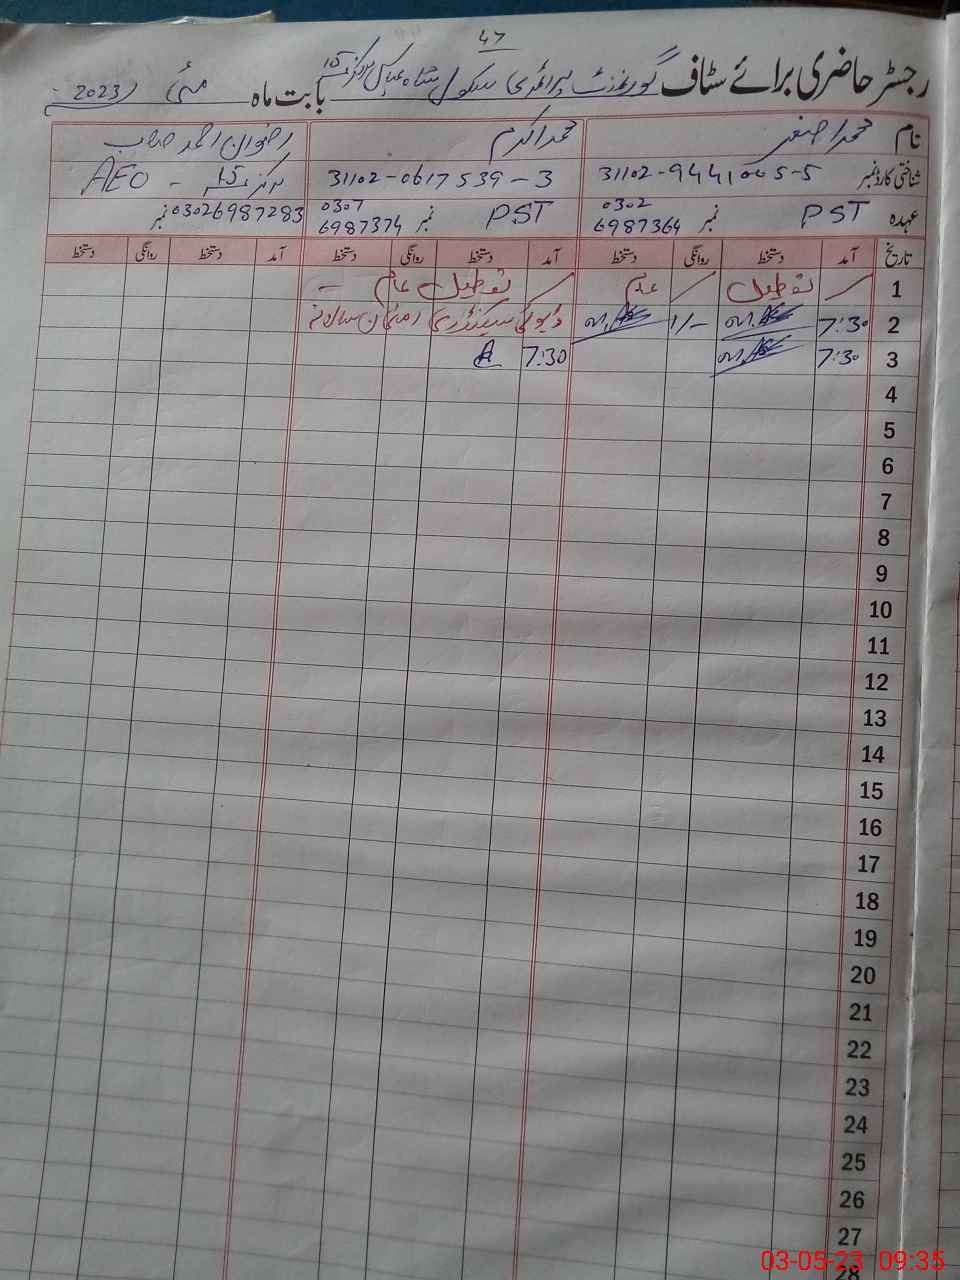 47
رجسٹر حاضری برائے سٹاف گورنمنٹ پرائمری سکول شاہ عباس مرکز 15 بابت ماہ مئی 2023
نام محمد اصغر محمد اکرم رضوان احمد صاحب
شناختی کارڈ نمبر 31102-9441005-5 31102-0617539-3 مرکز 15 - AEO
عہدہ PST نمبر 0302 6987364 PST نمبر 0307 6987374 03026987283 نمبر
تاریخ آمد دستخط روانگی دستخط آمد دستخط روانگی دستخط آمد دستخط روانگی دستخط
1 تعطیل عام تعطیل عام
2 7:30 1/- ڈیوٹی سیکنڈری امتحان سالانہ
3 7:30 7:30
4
5
6
7
8
9
10
11
12
13
14
15
16
17
18
19
20
21
22
23
24
25
26
27
28
03-05-23 09:35